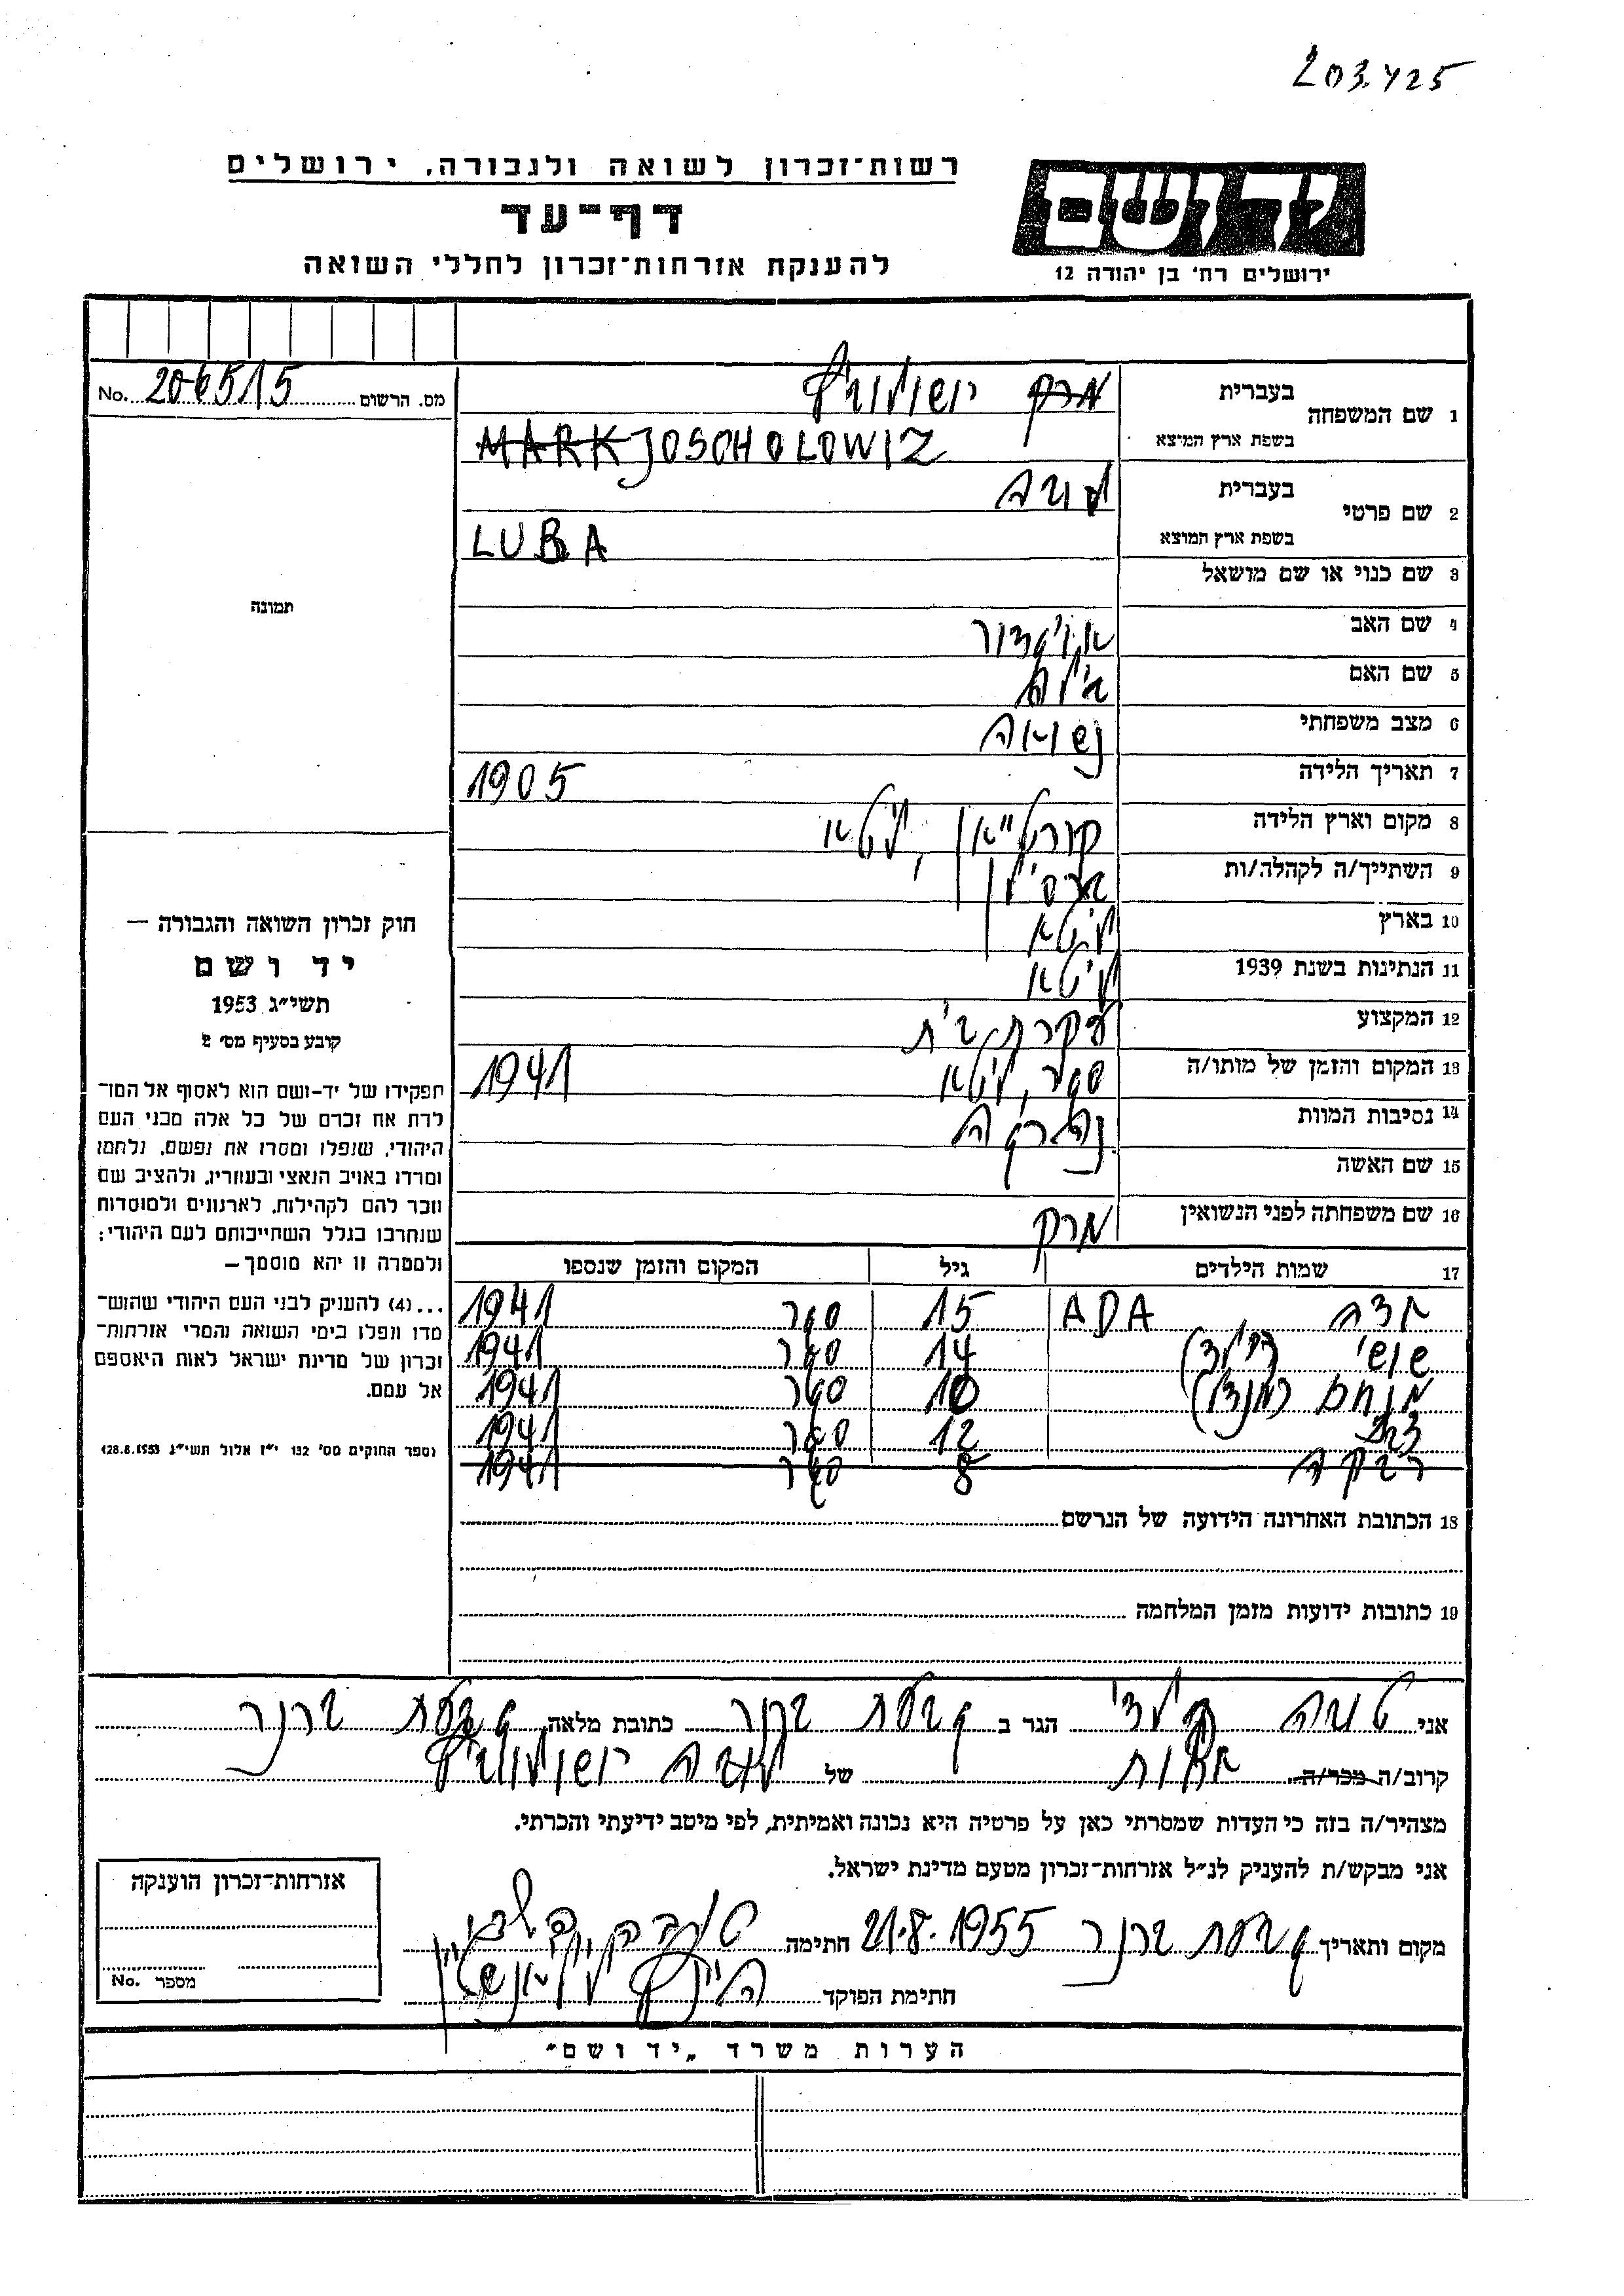 203.425
רשות־זכרון לשואה ולגבורה, ירושלים
דף־עד
להענקת אזרחות־זכרון לחללי השואה
יד ושם
ירושלים רח' בן יהודה 12
No. 206515 מס. הרשום
1 שם המשפחה
בעברית מרק יושולוביץ
בשפת ארץ המוצא MARK JOSCHOLOWIZ
2 שם פרטי
בעברית לובה
בשפת ארץ המוצא LUBA
3 שם כנוי או שם מושאל
4 שם האב אביגדור
5 שם האם בילה
6 מצב משפחתי נשואה
7 תאריך הלידה 1905
8 מקום וארץ הלידה ליטא
9 השתייך/ה לקהלה/ות
10 בארץ ליטא
11 הנתינות בשנת 1939 ליטא
12 המקצוע עקרת בית
13 המקום והזמן של מותו/ה ליטא 1941
14 נסיבות המוות נהרגה
15 שם האשה
16 שם משפחתה לפני הנשואין מרק
17 שמות הילדים גיל המקום והזמן שנספו
עדה ADA 15 1941
שושי 14 1941
מנחם (מנדל) 10 1941
12 1941
רבקה 8 1941
18 הכתובת האחרונה הידועה של הנרשם
19 כתובות ידועות מזמן המלחמה
תמונה
חוק זכרון השואה והגבורה —
יד ושם
תשי״ג 1953
קובע בסעיף מס' 2
תפקידו של יד-ושם הוא לאסוף אל המו־
לדת את זכרם של כל אלה מבני העם
היהודי, שנפלו ומסרו את נפשם, נלחמו
ומרדו באויב הנאצי ובעוזריו, ולהציב שם
וזכר להם לקהילות, לארגונים ולמוסדות
שנחרבו בגלל השתייכותם לעם היהודי;
ולמטרה זו יהא מוסמך —
...(4) להעניק לבני העם היהודי שהוש־
מדו ונפלו בימי השואה והמרי אזרחות־
זכרון של מדינת ישראל לאות היאספם
אל עמם.
(ספר החוקים מס' 132 י״ז אלול תשי״ג 28.8.1953)
אני טובה הגר ב גבעת ברנר כתובת מלאה גבעת ברנר
קרוב/ה מכר/ה אחות של לובה יושולוביץ
מצהיר/ה בזה כי העדות שמסרתי כאן על פרטיה היא נכונה ואמיתית, לפי מיטב ידיעתי והכרתי.
אני מבקש/ת להעניק לנ״ל אזרחות־זכרון מטעם מדינת ישראל.
מקום ותאריך גבעת ברנר 21.8.1955 חתימה
חתימת הפוקד
אזרחות־זכרון הוענקה
No. מספר
הערות משרד „יד ושם״